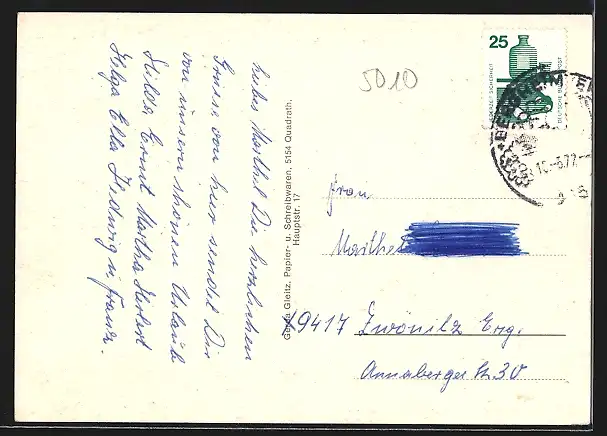 liebes Marthel Die herzlichen
Grüsse von hier sendet Dir
von unsern schönen Urlaub
Hilde Ernst Martha Herbert
Helga Ella Hedwig u. Franz.
Gerda Gleitz, Papier- u. Schreibwaren, 5154 Quadrath,
Hauptstr. 17
5010
25
DEUTSCHE BUNDESPOST
BERGHEIM
10.-5.77.-
Frau
Marthel
x9417 Zwönitz Erzg.
Annaberger Str 30